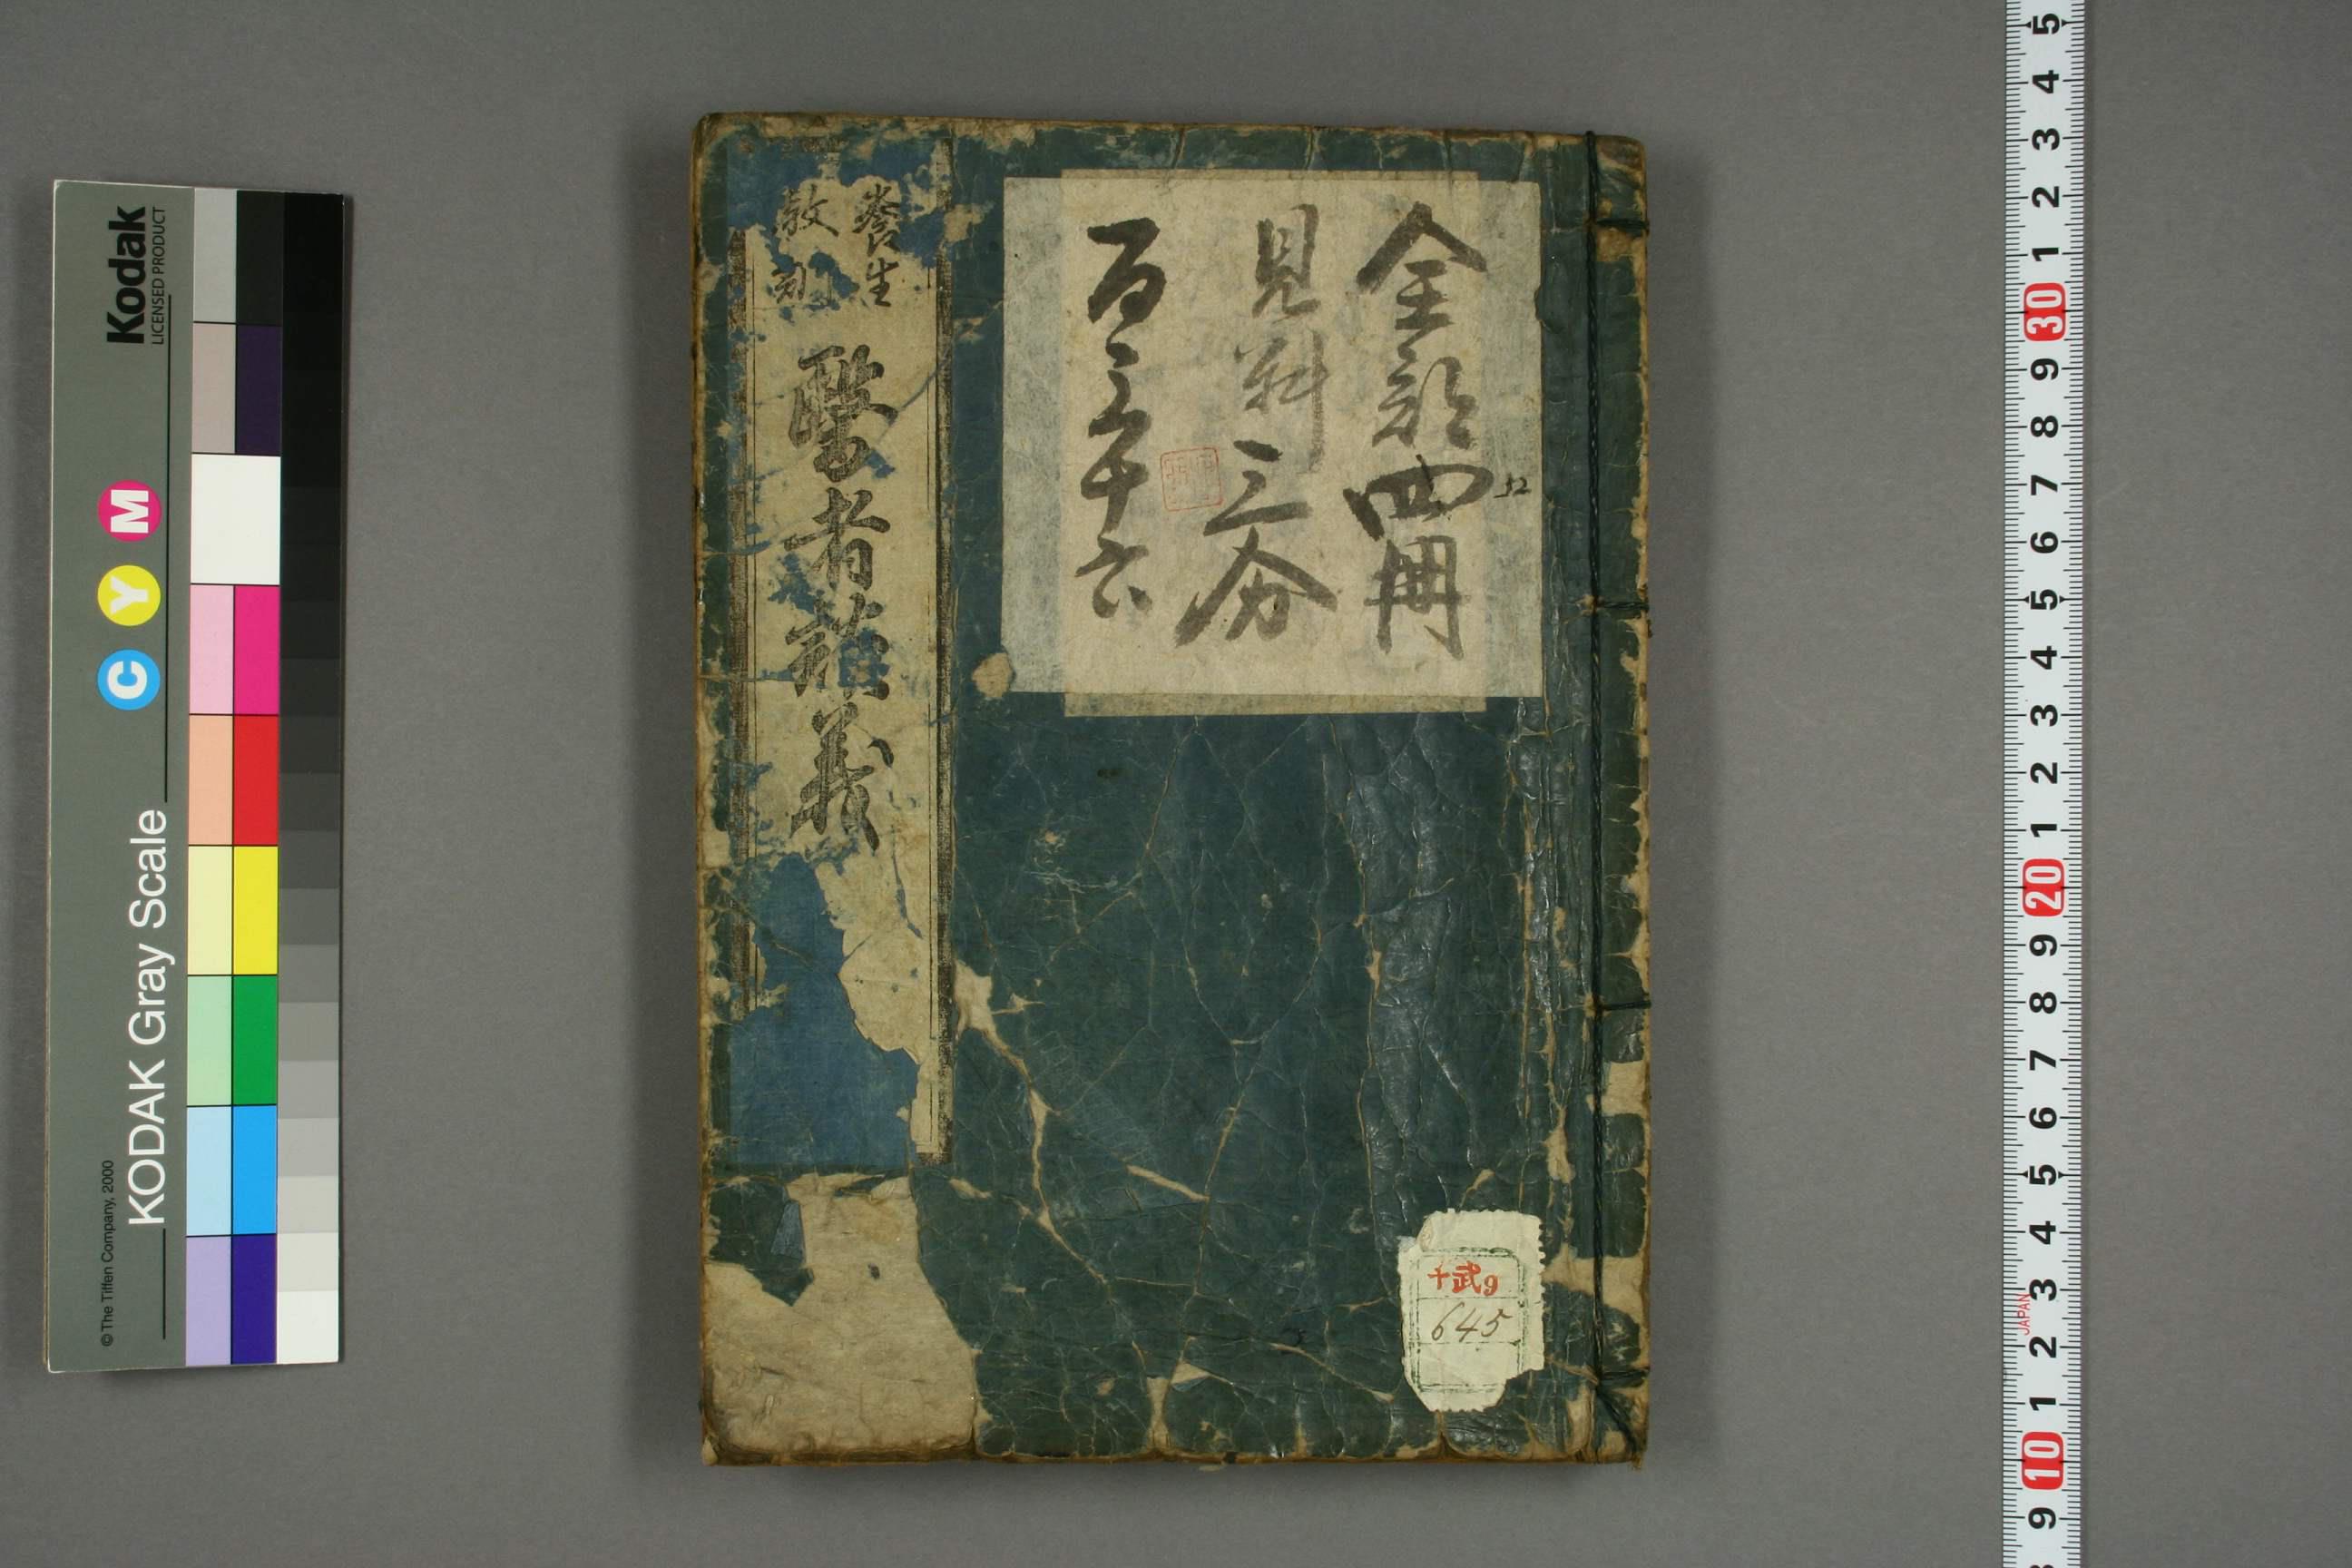 全部四冊
見料三分
百三十六
養生
教訓
醫者談義
十武9
645
Kodak
LICENSED PRODUCT
C Y M
KODAK Gray Scale
© The Tiffen Company, 2000
5
4
3
2
1
30
9
8
7
6
5
4
3
2
1
20
9
8
7
6
5
4
3
2
1
10
9
JAPAN